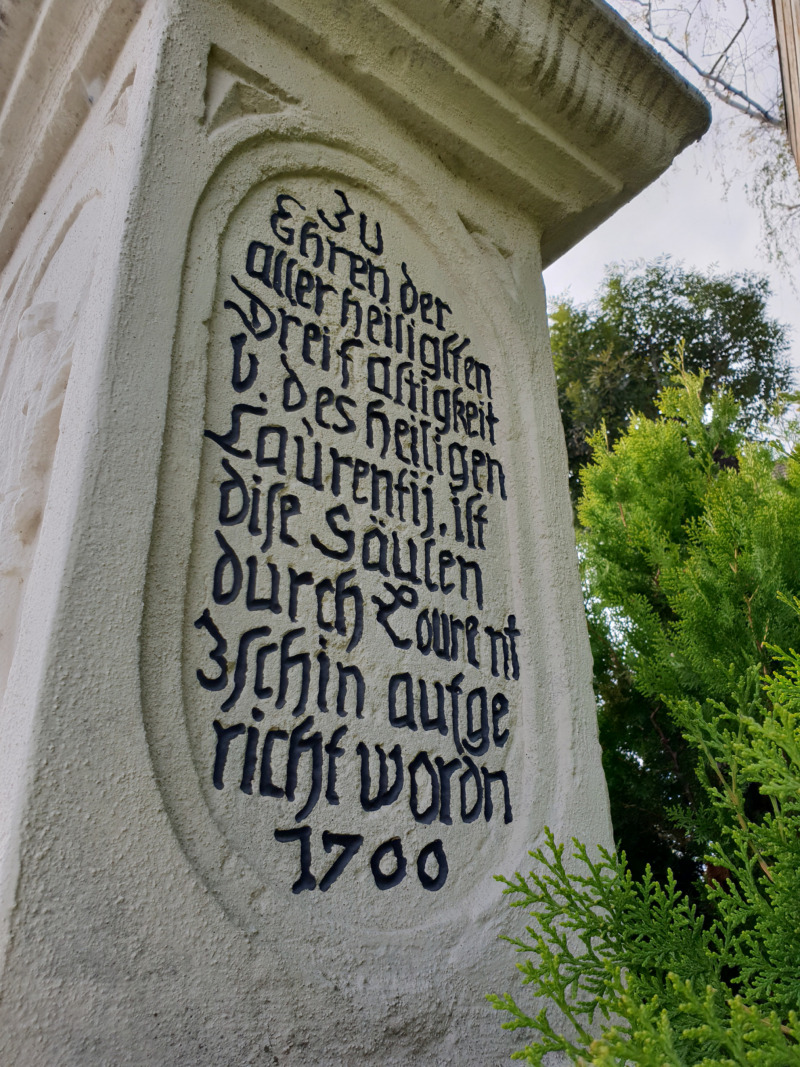 Zu
Ehren der
aller heiligsten
Dreifaltigkeit
U. des heiligen
Laùrentij. ist
dise Säulen
durch Lourent
Zschin aufge
richt wordn
1700